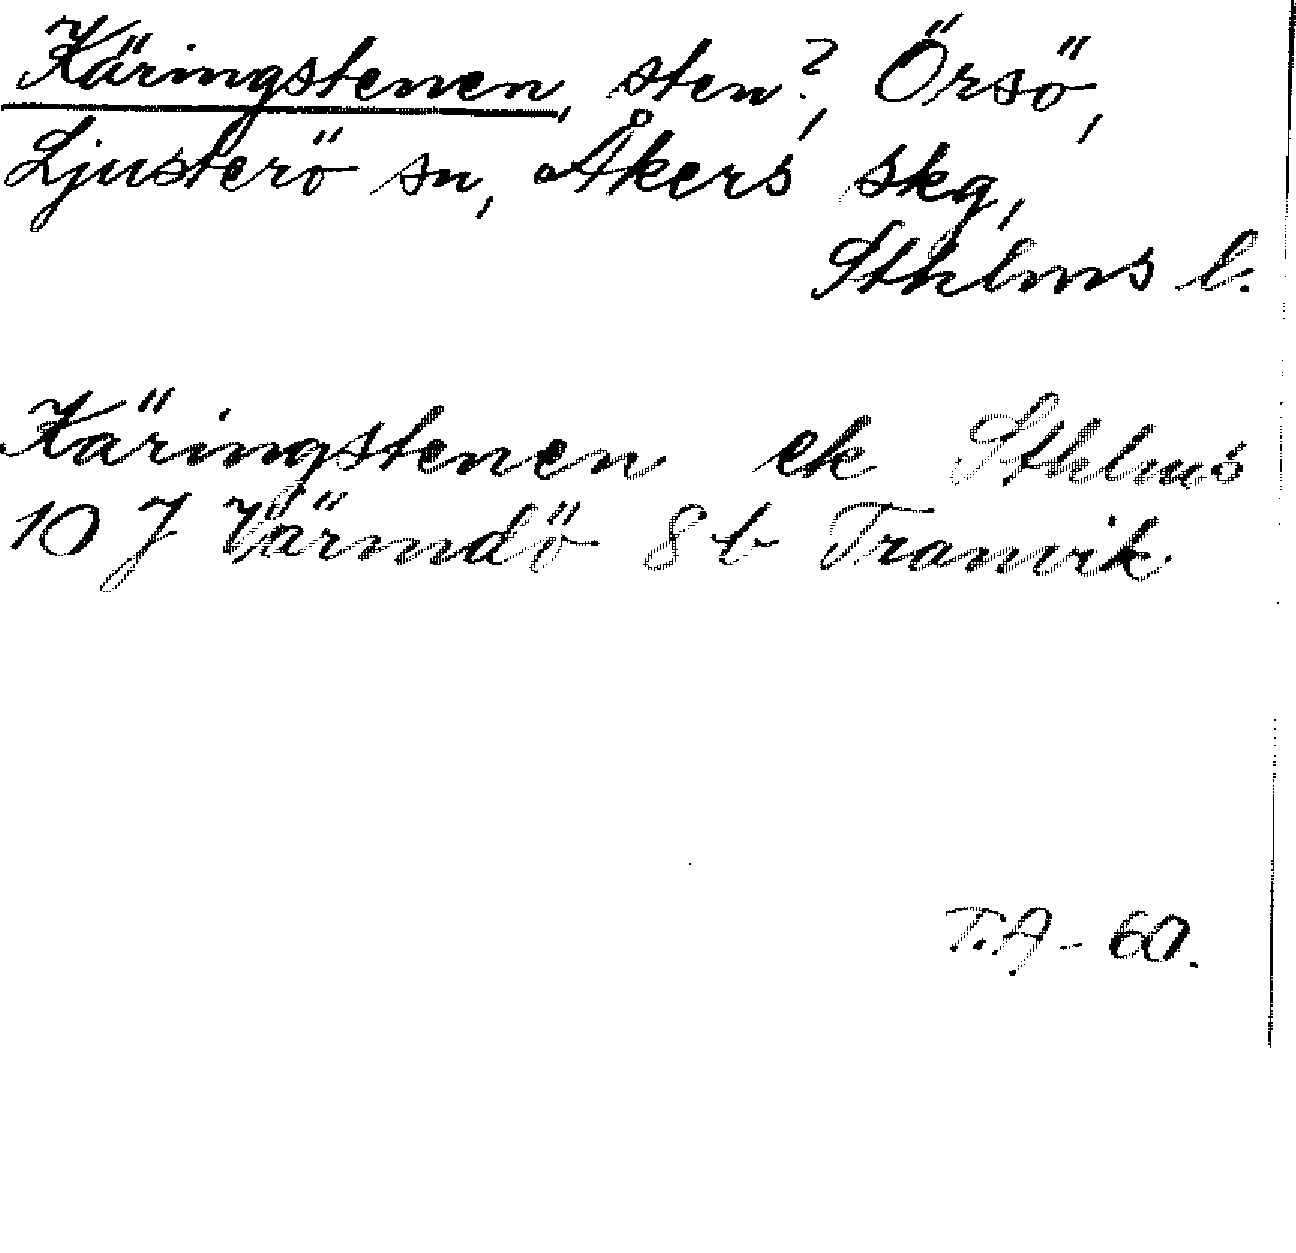 Käringstenen, sten?, Örsö,
Ljusterö sn, Åkers skg,
Sthlms l.
Käringstenen ek Sthlms
10 J Värmdö 8 b Tranvik.
T.A - 60.